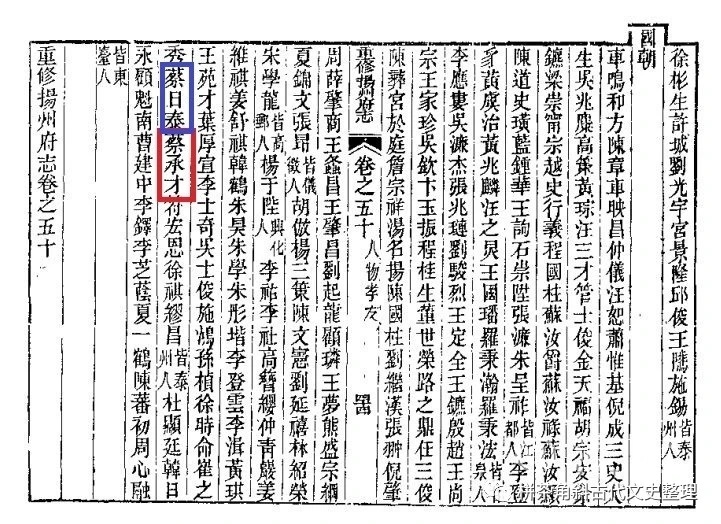 徐彬生許城劉光宇宮景隆邱俊王鷹施錫皆泰州人
國朝
車鳴和方陳章車映昌仲儀汪恕蕭惟基倪成三史
生吳兆麋高秉黃琮汪三才管士俊金天福胡宗
鑣梁崇甯宗越史行義程國柱蘇汝爵蘇汝祿蘇汝
陳道史璜藍鍾華王詢石崇陞張濂朱呈祚皆江都人李登
豸黃廣治黃兆麟汪之炅王國璠羅秉瀚羅秉法皆甘泉人
李應婁吳濂杰張兆璉劉駿烈王定全王鑣殷趙王尚
宗王家珍吳欽卞玉振程桂生董世榮路之鼎任三俊
陳彝宮於庭詹宗祥湯名揚陳國柱劉繼漢張翀倪肇
重修揚州府志 卷之五十 人物孝友 四
周薛肇商王螽昌王肇昌劉起龍顧璘王夢熊盛宗
夏錦文張昂皆儀徵人胡倣楊三策陳文憲劉延禧林紹榮
宋學龍皆高郵人楊于陛興化人李祐李社高簪纓仲青嚴姜
維祺姜舒祺韓鶴朱昊朱學朱彤堦李登雲李湒黃琪
王苑才葉厚宜李士奇吳士俊施鴻孫楨徐時命崔之
秀蔡日泰蔡承才符宏恩徐祺繆昌皆泰州人杜顯廷韓日
永顧魁南曹建中李鐸李芝蔭夏一鶴陳蕃初周心融
皆東臺人
重修揚州府志卷之五十
拼茶角斜古代文史整理